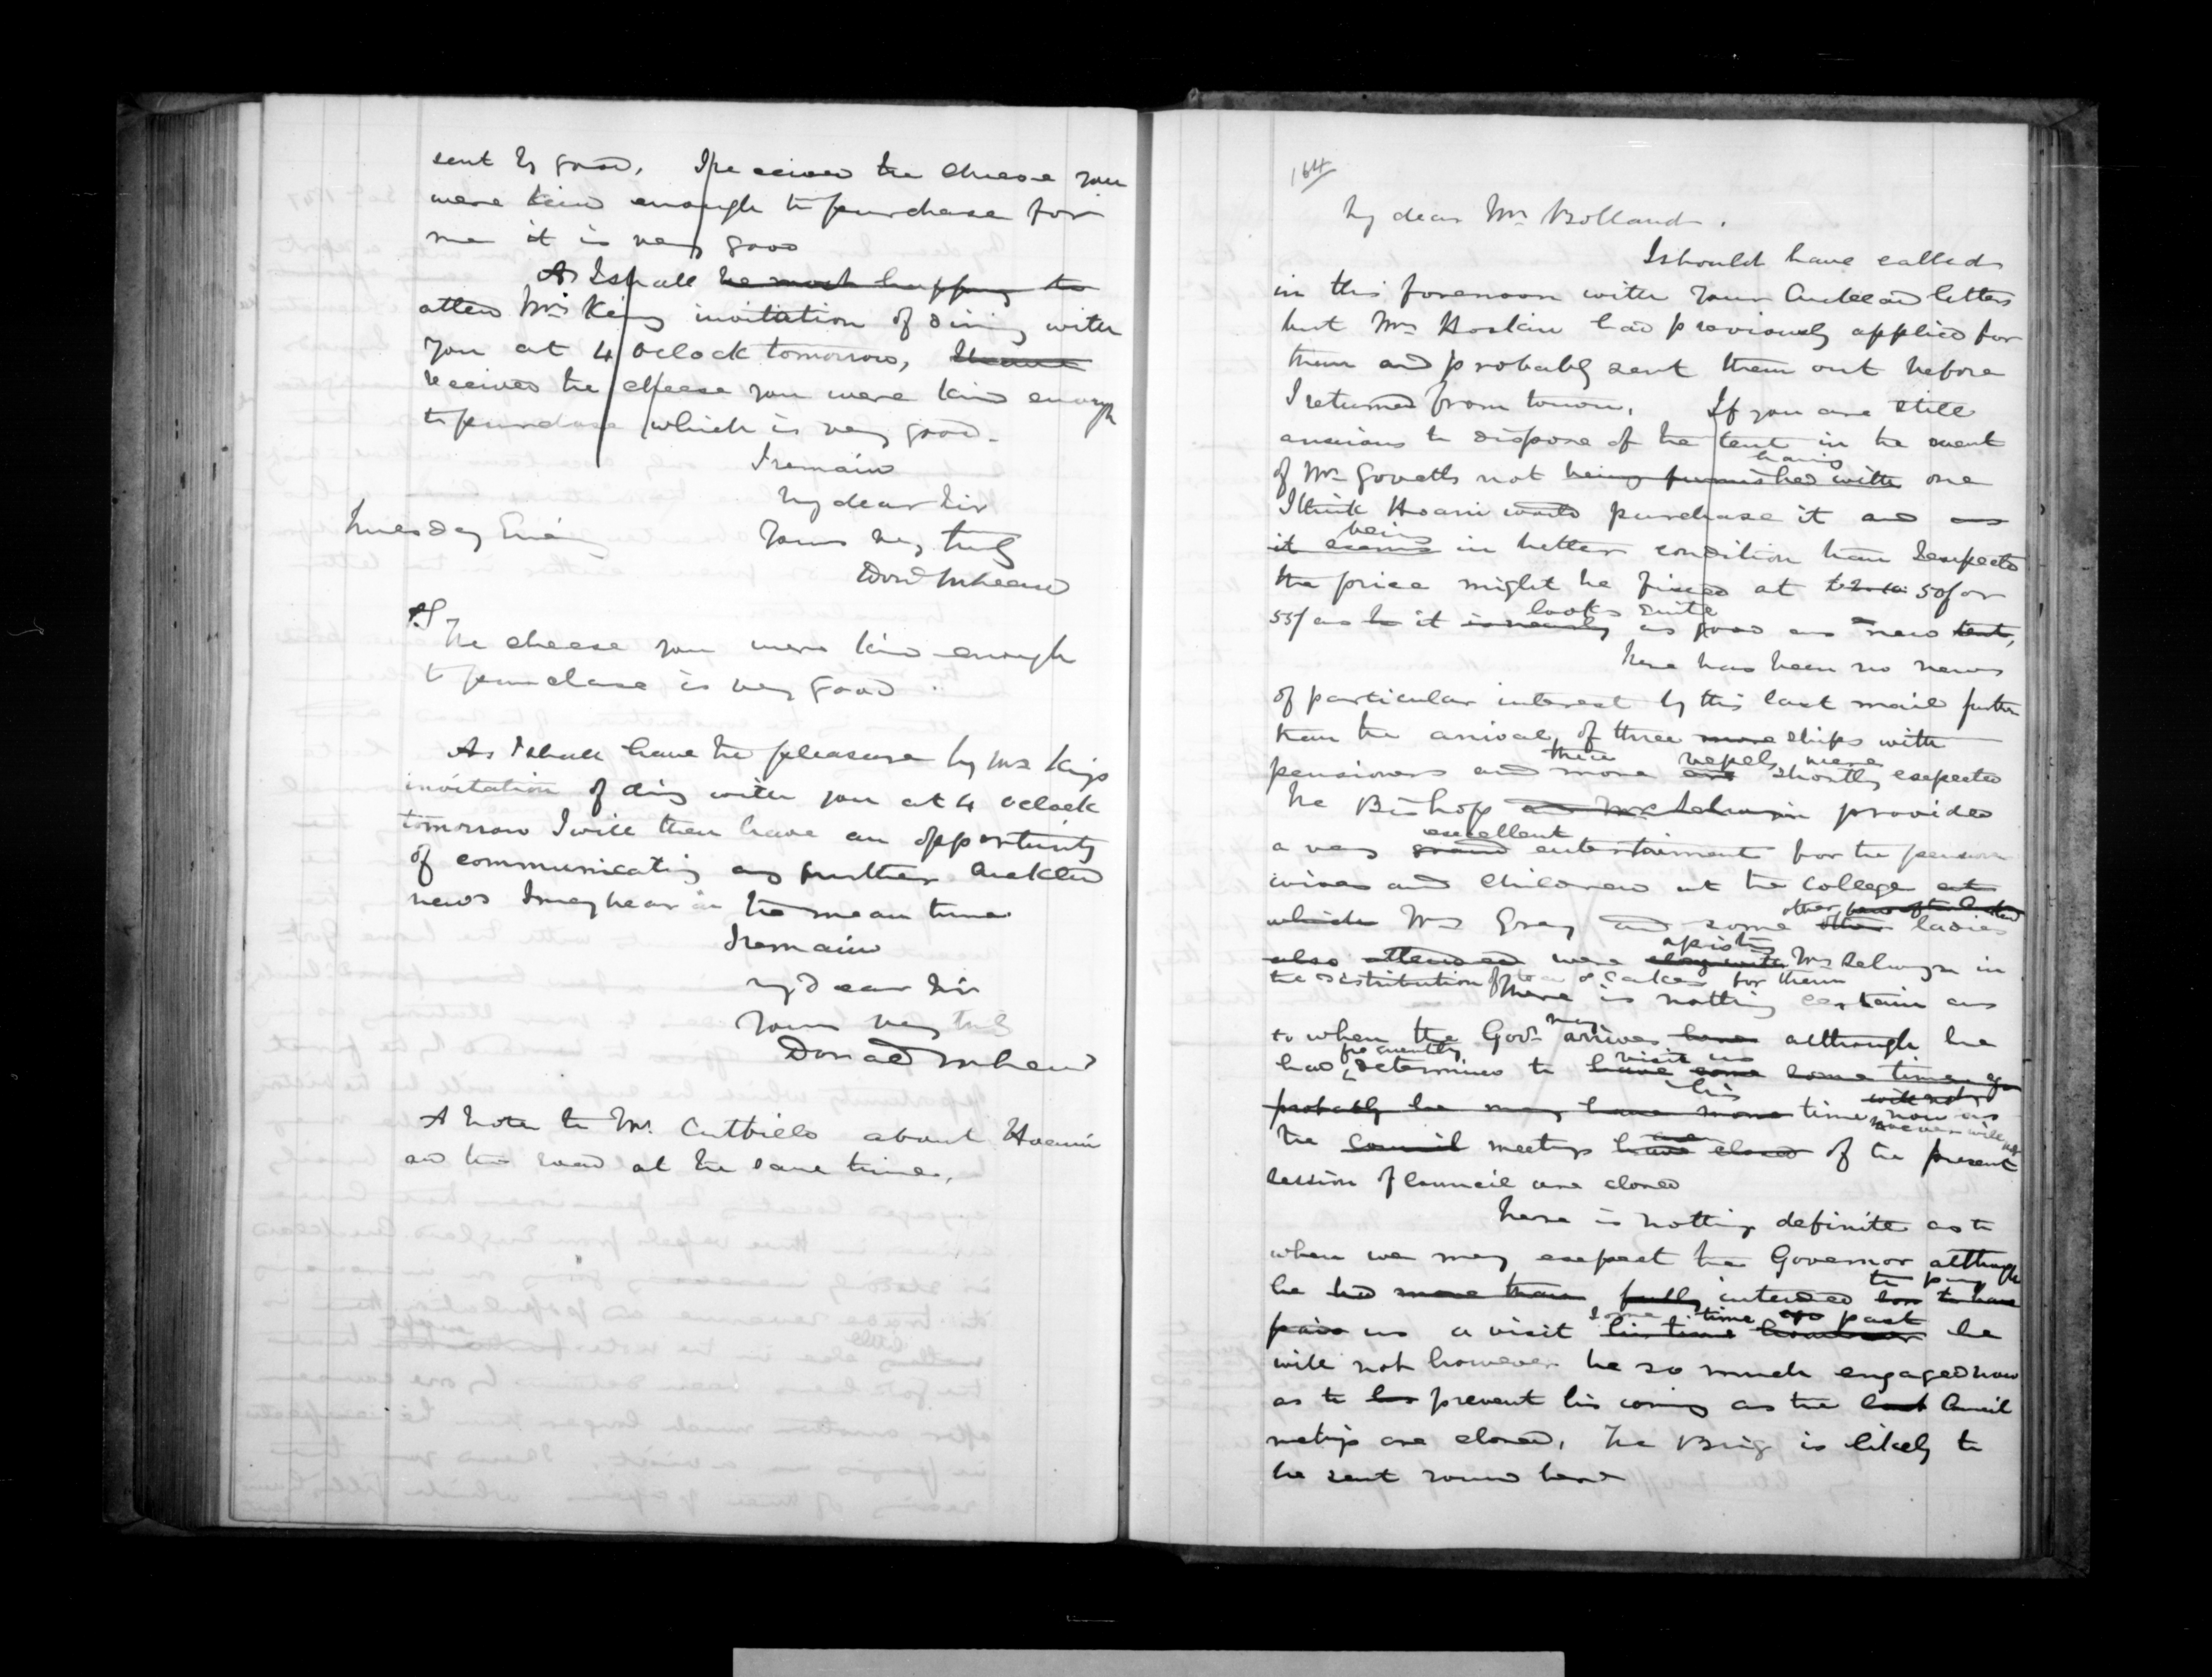 sent is good. I received the cheese you
were kind enough to purchase for
me it is very good
As I shall be most happy to
attend Mrs Kings invitation of dining with
you at 4 Oclock tomorrow, I have
received the cheese you were kind enough
to purchase which is very good.
I remain
My dear Sir
Tuesday Evening Yours very truly
Dond McLean
PS
The cheese you were kind enough
to purchase is very good
As I shall have the pleasure by Mrs Kings
invitation of ding with you at 4 oclock
tomorrow I will then have an opportunity
of communicating any further Auckland
news I may hear in the mean time
I remain
my dear Sir
Yours very truly
Donald McLean
A note to Mr. Cutfield about Hoani
and the road at the same time.
164
My dear Mr Bolland.
I should have called
in this forenoon with your Auckland letters
but Mr Hoskin had previously applied for
them and probably sent them out before
I returned from town. If you are still
anxious to dispose of the tent in the event
having
of Mr Govetts not being furnished with one
I think Hoani would purchase it and as
being
it seems in better condition than I expected
the price might be fixed at 50/ or
looks quite
55/ as it is nearly as good as new tent,
There has been no news
of particular interest by this last mail further
than the arrival of three more ships with
three vessels were
pensioners and more are shortly expected
The Bishop and Mrs Selwyn provided
excellent
a very grand entertainment for the pensioners
wives and children at the College at
other
which Mrs Grey and some other ladies
assisting
also attended were along with Mrs Selwyn in
the distribution of tea & cakes for them
There is nothing certain as
may
to when the Govr arrives here although he
frequently visit us
had determined to have come some time ago
his will not
probably he may have more time now as
however will not
are
The Council meetings have closed of the present
session of Council are closed
There is nothing definite as to
when we may expect the Governor although
to pay
he had more than fully intended to have
some time ago past
paid us a visit his time however he
will not however be so much engaged now
as to prevent his coming as the last Council
meetings are closed. The Brig is likely to
be sent round here